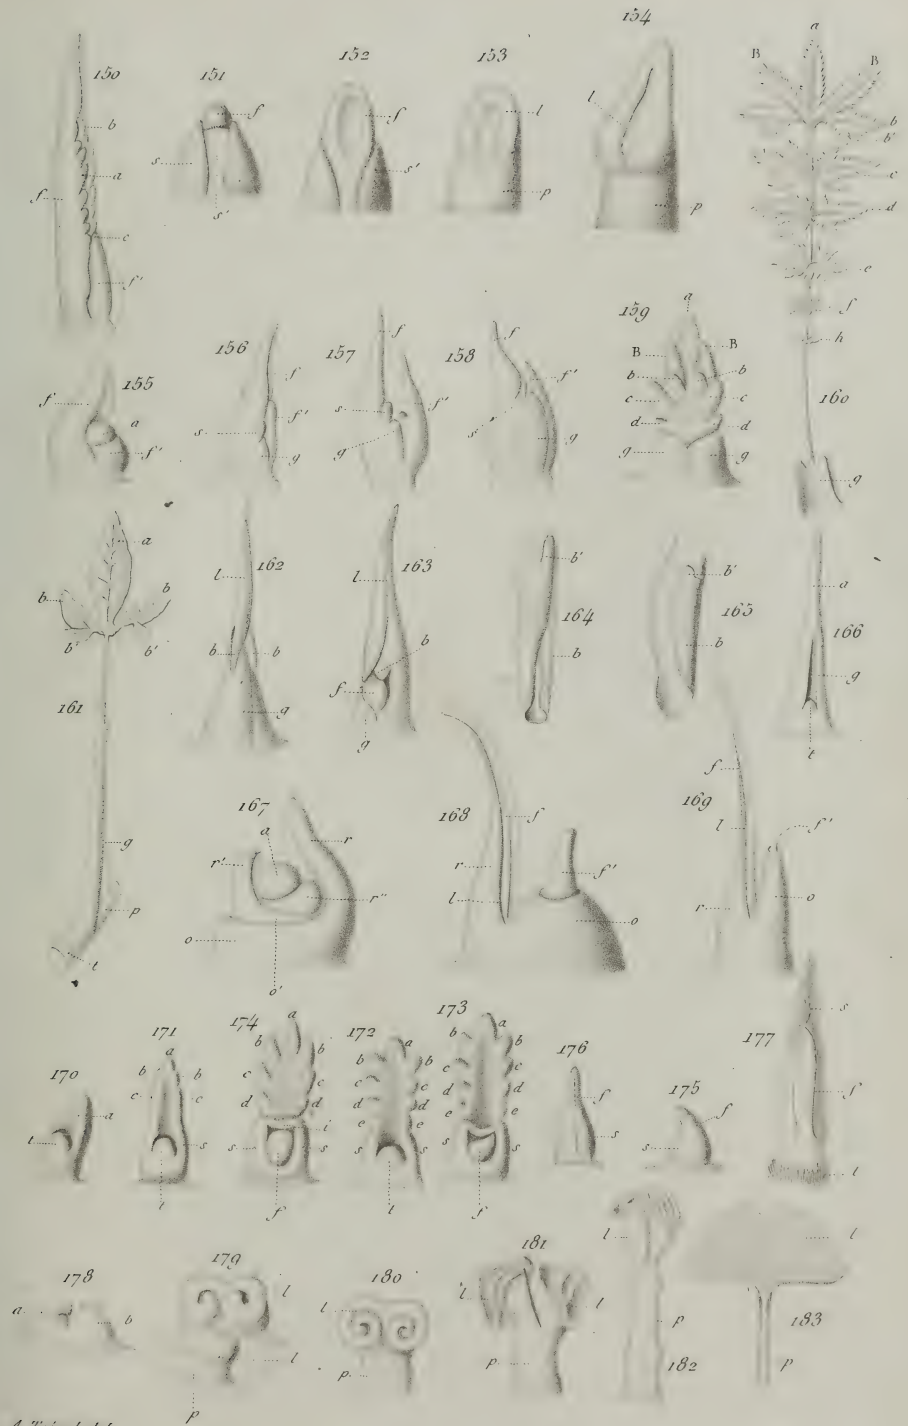 150
b
a
f
c
f'
151
f
s
s'
152
f
s'
153
l
p
154
l
p
a
B
B
b
b'
c
d
e
f
h
160
g
155
f
a
f'
156
f
s
f'
g
157
f
s
f'
g
158
f
f'
s
r
g
159
a
B
B
b
b
c
c
d
d
g
g
a
b
b
b'
b'
161
g
p
t
162
l
b
b
g
163
l
b
f
g
b'
164
b
b'
165
b
a
166
g
t
167
a
r
r'
r"
o
o'
168
f
r
l
f'
o
169
f
l
f'
r
o
170
a
t
171
a
b
b
c
c
s
l
174
a
b
b
c
c
d
d
i
s
s
f
172
a
b
b
c
c
d
d
e
e
s
s
l
173
a
b
b
c
c
d
d
e
e
s
s
f
176
f
s
175
f
s
177
s
f
t
178
a
b
179
l
l
p
180
l
p
181
l
l
p
l
p
182
l
183
p